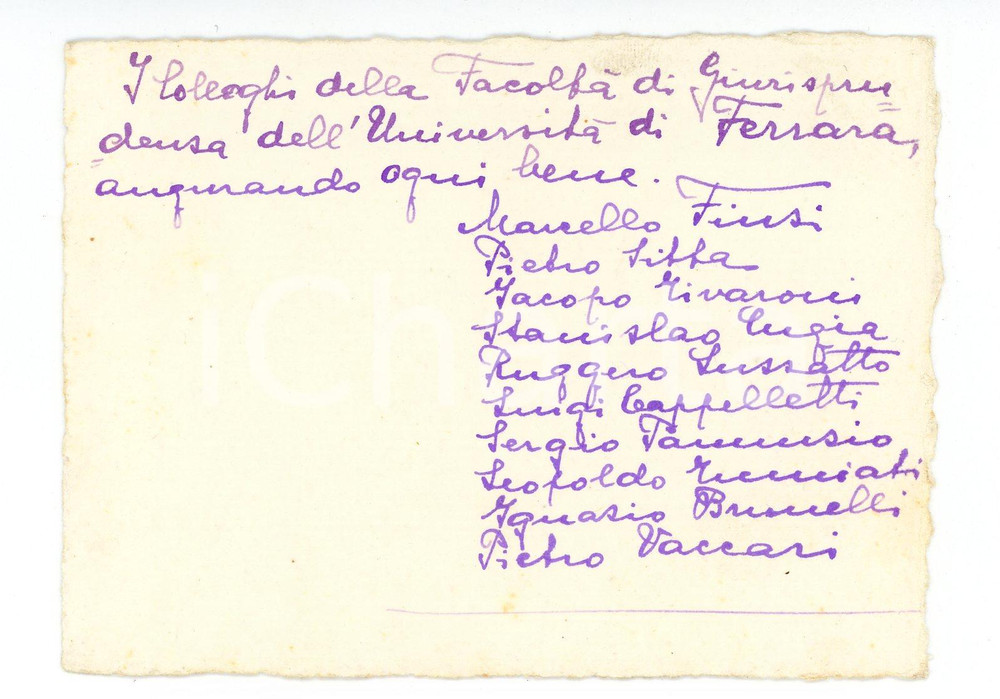 I Colleghi della Facoltà di Giurispru=
=denza dell'Università di Ferrara,
augurando ogni bene.
Marcello Finzi
Pietro Sitta
Jacopo Tivaroni
Stanislao Cugia
Ruggero Luzzatto
Luigi Cappelletti
Sergio Pannunzio
Leopoldo Tumiati
Ignazio Brunelli
Pietro Vaccari